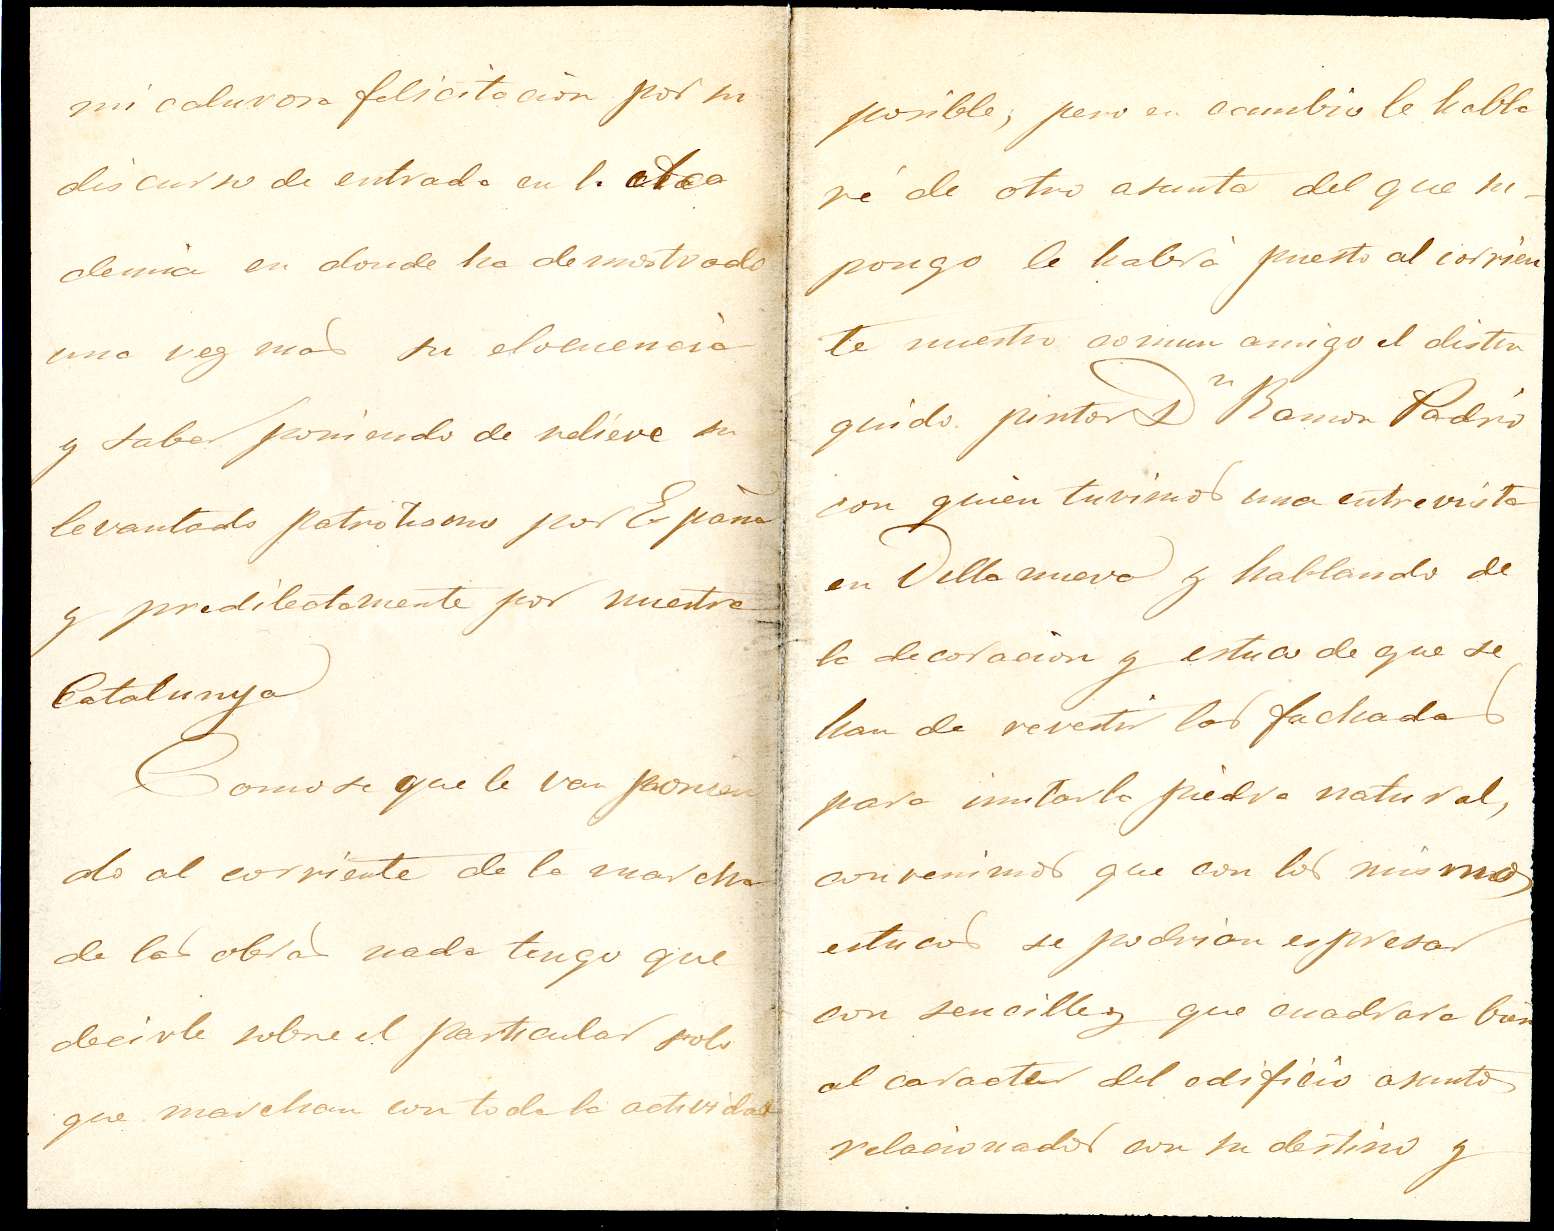 mi calurosa felicitación por su
discurso de entrada en la aca
demia en donde ha demostrado
una vez mas su elocuencia
y saber poniendo de relieve su
levantado patriotismo por España
y predilectamente por nuestra
Catalunya
Como se que le van ponien
do al corriente de la marcha
de las obras nada tengo que
decirle sobre el particular solo
que marchan con toda la actividad
posible; pero en cambio le habla
ré de otro asunto del que su-
pongo le habrá puesto al corrien
te nuestro comun amigo el distin
guido pintor Dn Ramon Padró
con quien tuvimos una entrevista
en Villanueva y hablando de
la decoracion y estuco de que se
han de revestir las fachadas
para imitar la piedra natural,
convenimos que con los mismos
estucos se podrian espresar
con sencillez que cuadrara bien
al caracter del edificio asuntos
relacionados con su destino y